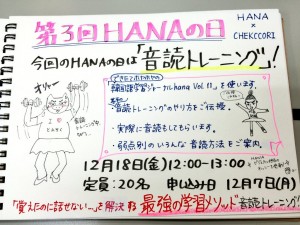 第3回HANAの日
HANA
×
CHEKCCORI
今回のHANAの日は「音読トレーニング」!
できたてホカホカの
韓国語学習ジャーナルhana Vol.11」を使います。
音読トレーニングのやり方をご伝授。
・実際に音読もしてもらいます。
・弱点別のいろんな音読方法をご案内。
オリャー
I ♡
12月18日(金)12:00-13:00
定員:20名 申し込み〆日 12月7日(月)
「覚えたのに話せない…」を解決する 最強の学習メソッド音読トレーニング!